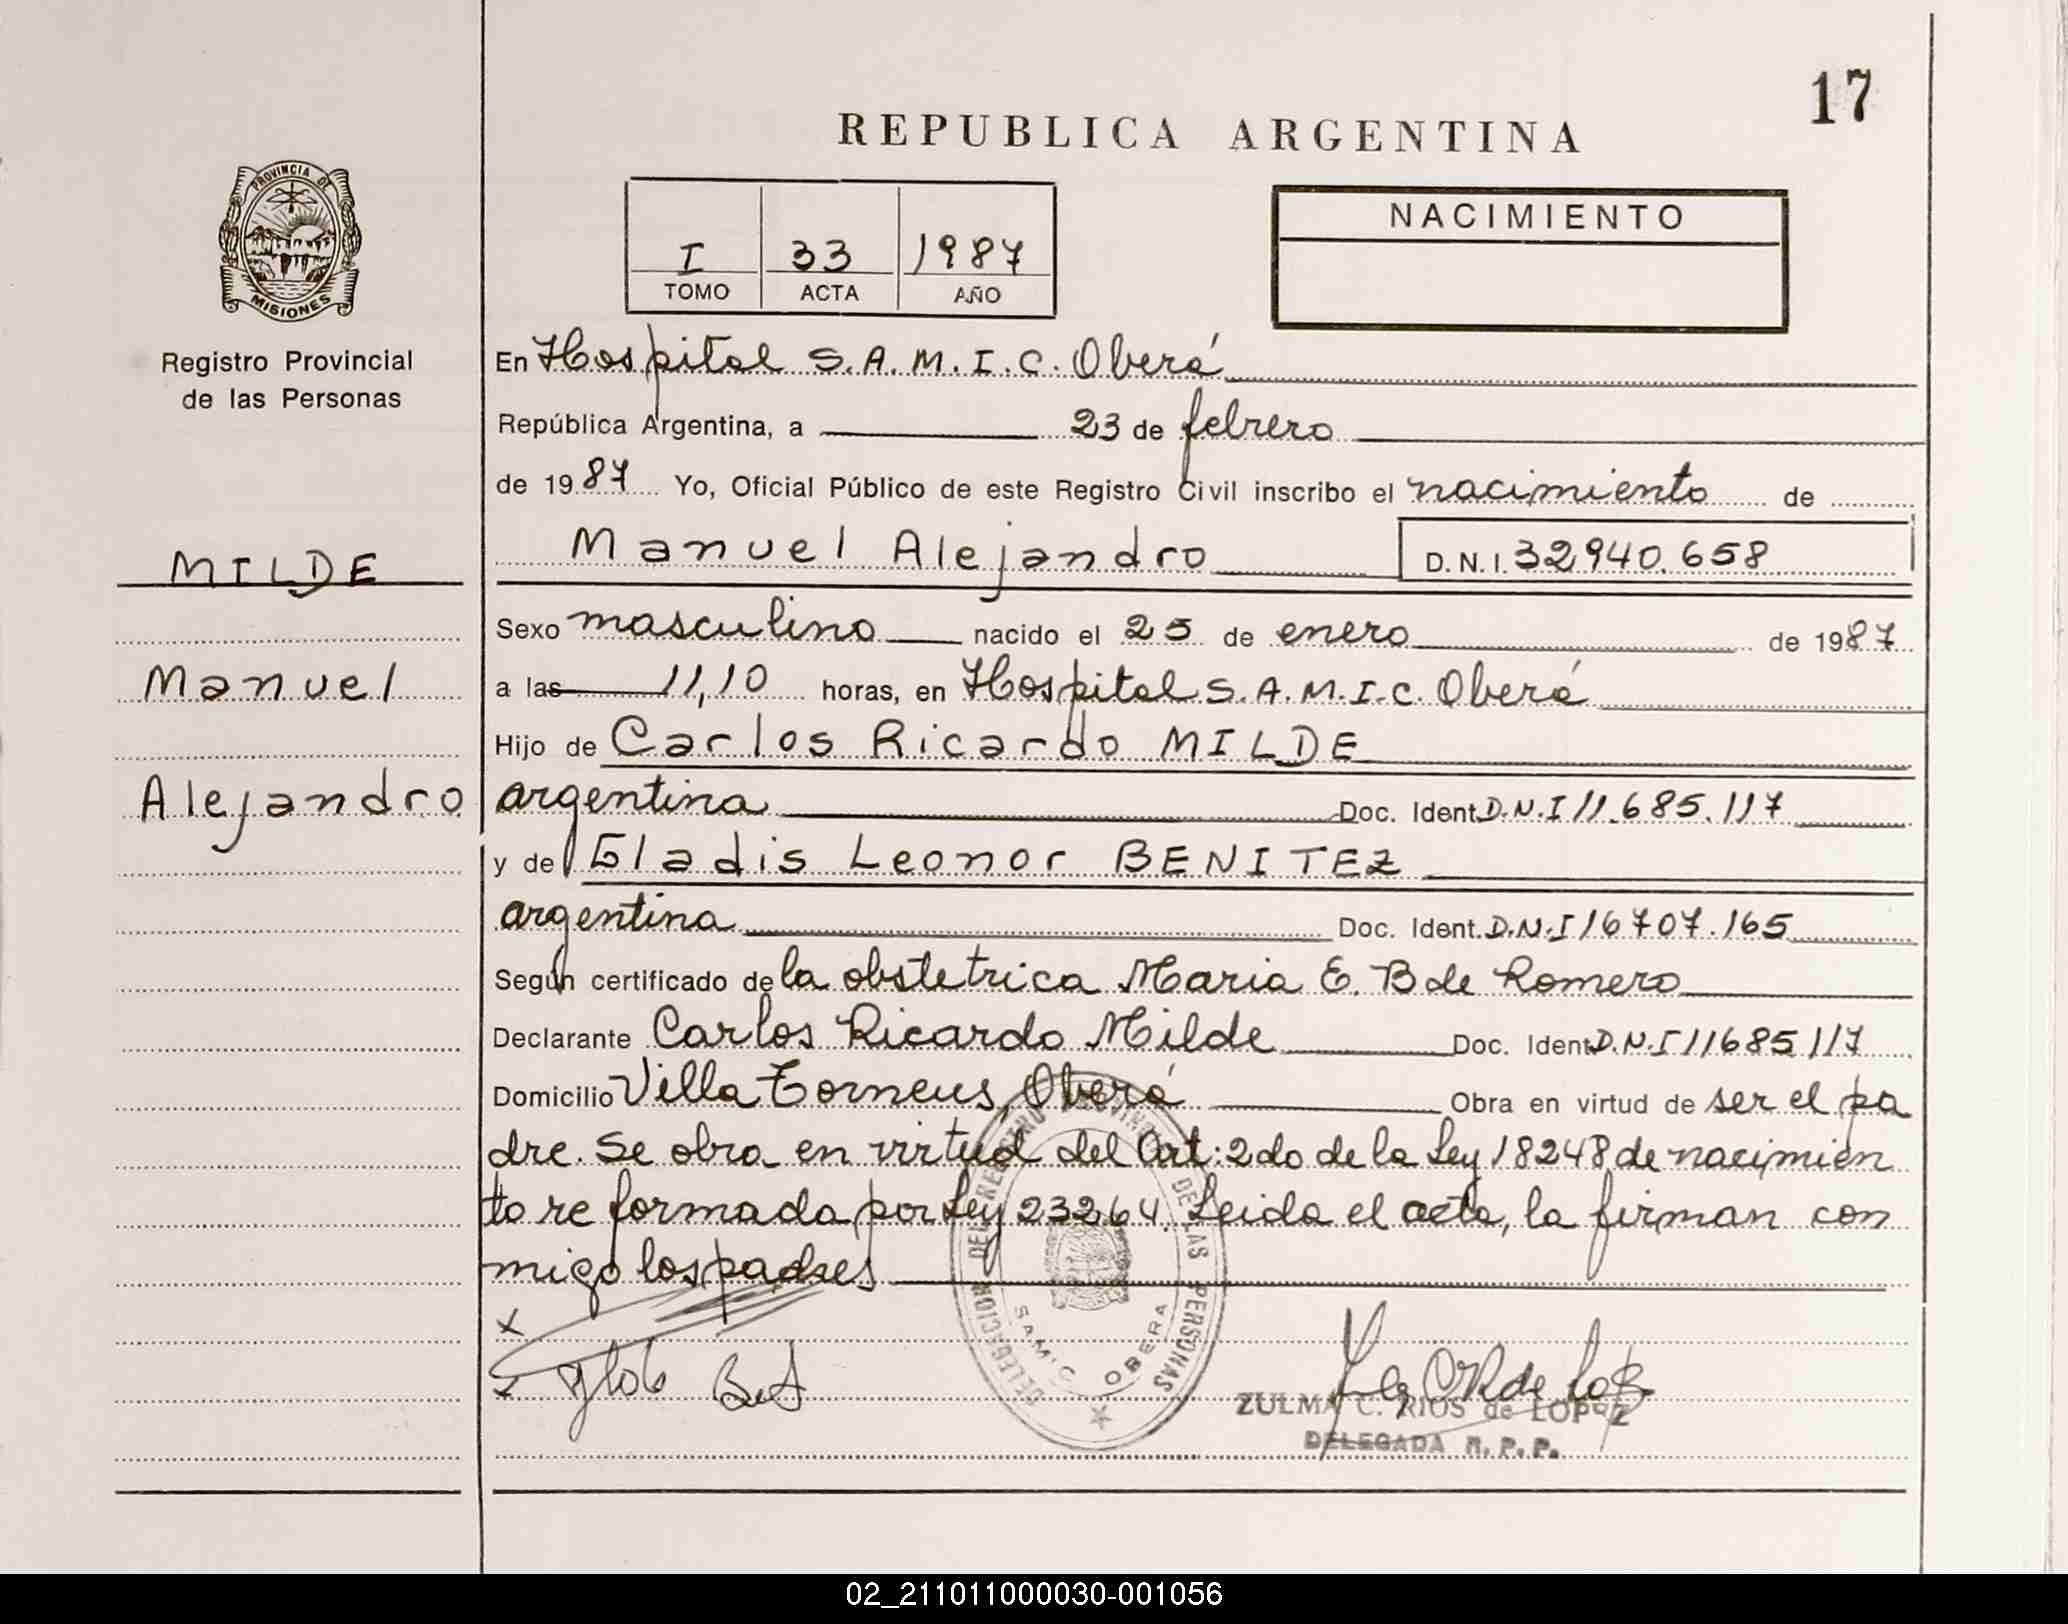 17
REPUBLICA ARGENTINA
PROVINCIA DE
MISIONES
Registro Provincial
de las Personas
I 33 1987
TOMO ACTA AÑO
NACIMIENTO
En Hospital S.A.M.I.C. Oberá
República Argentina, a 23 de febrero
de 1987 Yo, Oficial Público de este Registro Civil inscribo el nacimiento de
Manuel Alejandro D.N.I. 32940.658
MILDE
Manuel
Alejandro
Sexo masculino nacido el 25 de enero de 1987
a las 11,10 horas, en Hospital S.A.M.I.C. Oberá
Hijo de Carlos Ricardo MILDE
argentina Doc. Ident. D.N.I 11.685.117
y de Gladis Leonor BENITEZ
argentina Doc. Ident. D.N.I 16707.165
Según certificado de la obstetrica Maria E. B de Romero
Declarante Carlos Ricardo Milde Doc. Ident D.N.I 11685117
Domicilio Villa Torneus, Oberá Obra en virtud de ser el pa
dre. Se obra en virtud del Art: 2do de la Ley 18248 de nacimien
to reformada por Ley 23264. Leida el acta, la firman con
migo los padres
DELEGACION DEL REGISTRO DE LAS PERSONAS
SAMIC OBERA
ZULMA C. RIOS de LOPEZ
DELEGADA R.P.P.
02_211011000030-001056